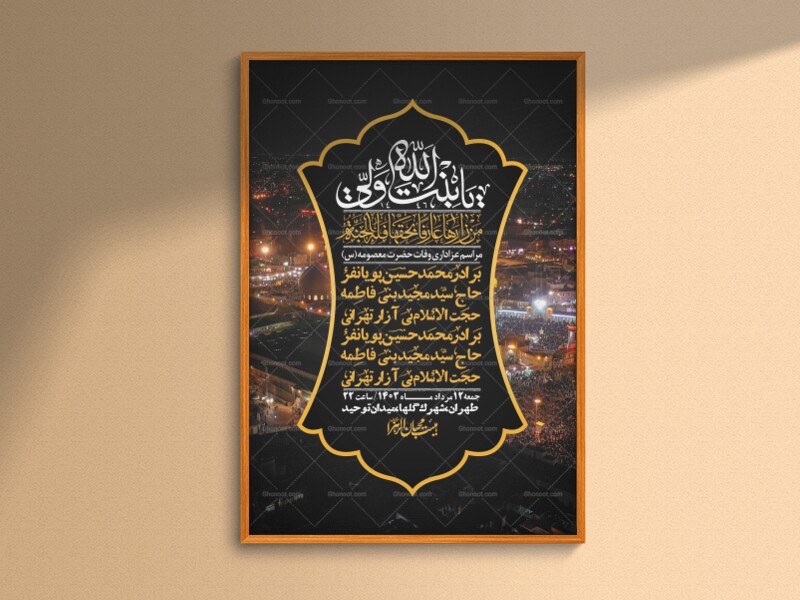 یا بنت ولی الله
من زارها عارفا بحقها فله الجنة
مراسم عزاداری وفات حضرت معصومه (س)
برادر محمدحسین پویانفر
حاج سید مجید بنی فاطمه
حجت الاسلام بی آزار تهرانی
برادر محمدحسین پویانفر
حاج سید مجید بنی فاطمه
حجت الاسلام بی آزار تهرانی
جمعه ۱۲ مرداد ماه ۱۴۰۳ / ساعت ۲۲
طهران شهرک گلها میدان توحید
هیئت محبان الزهرا
Ghonoot.com